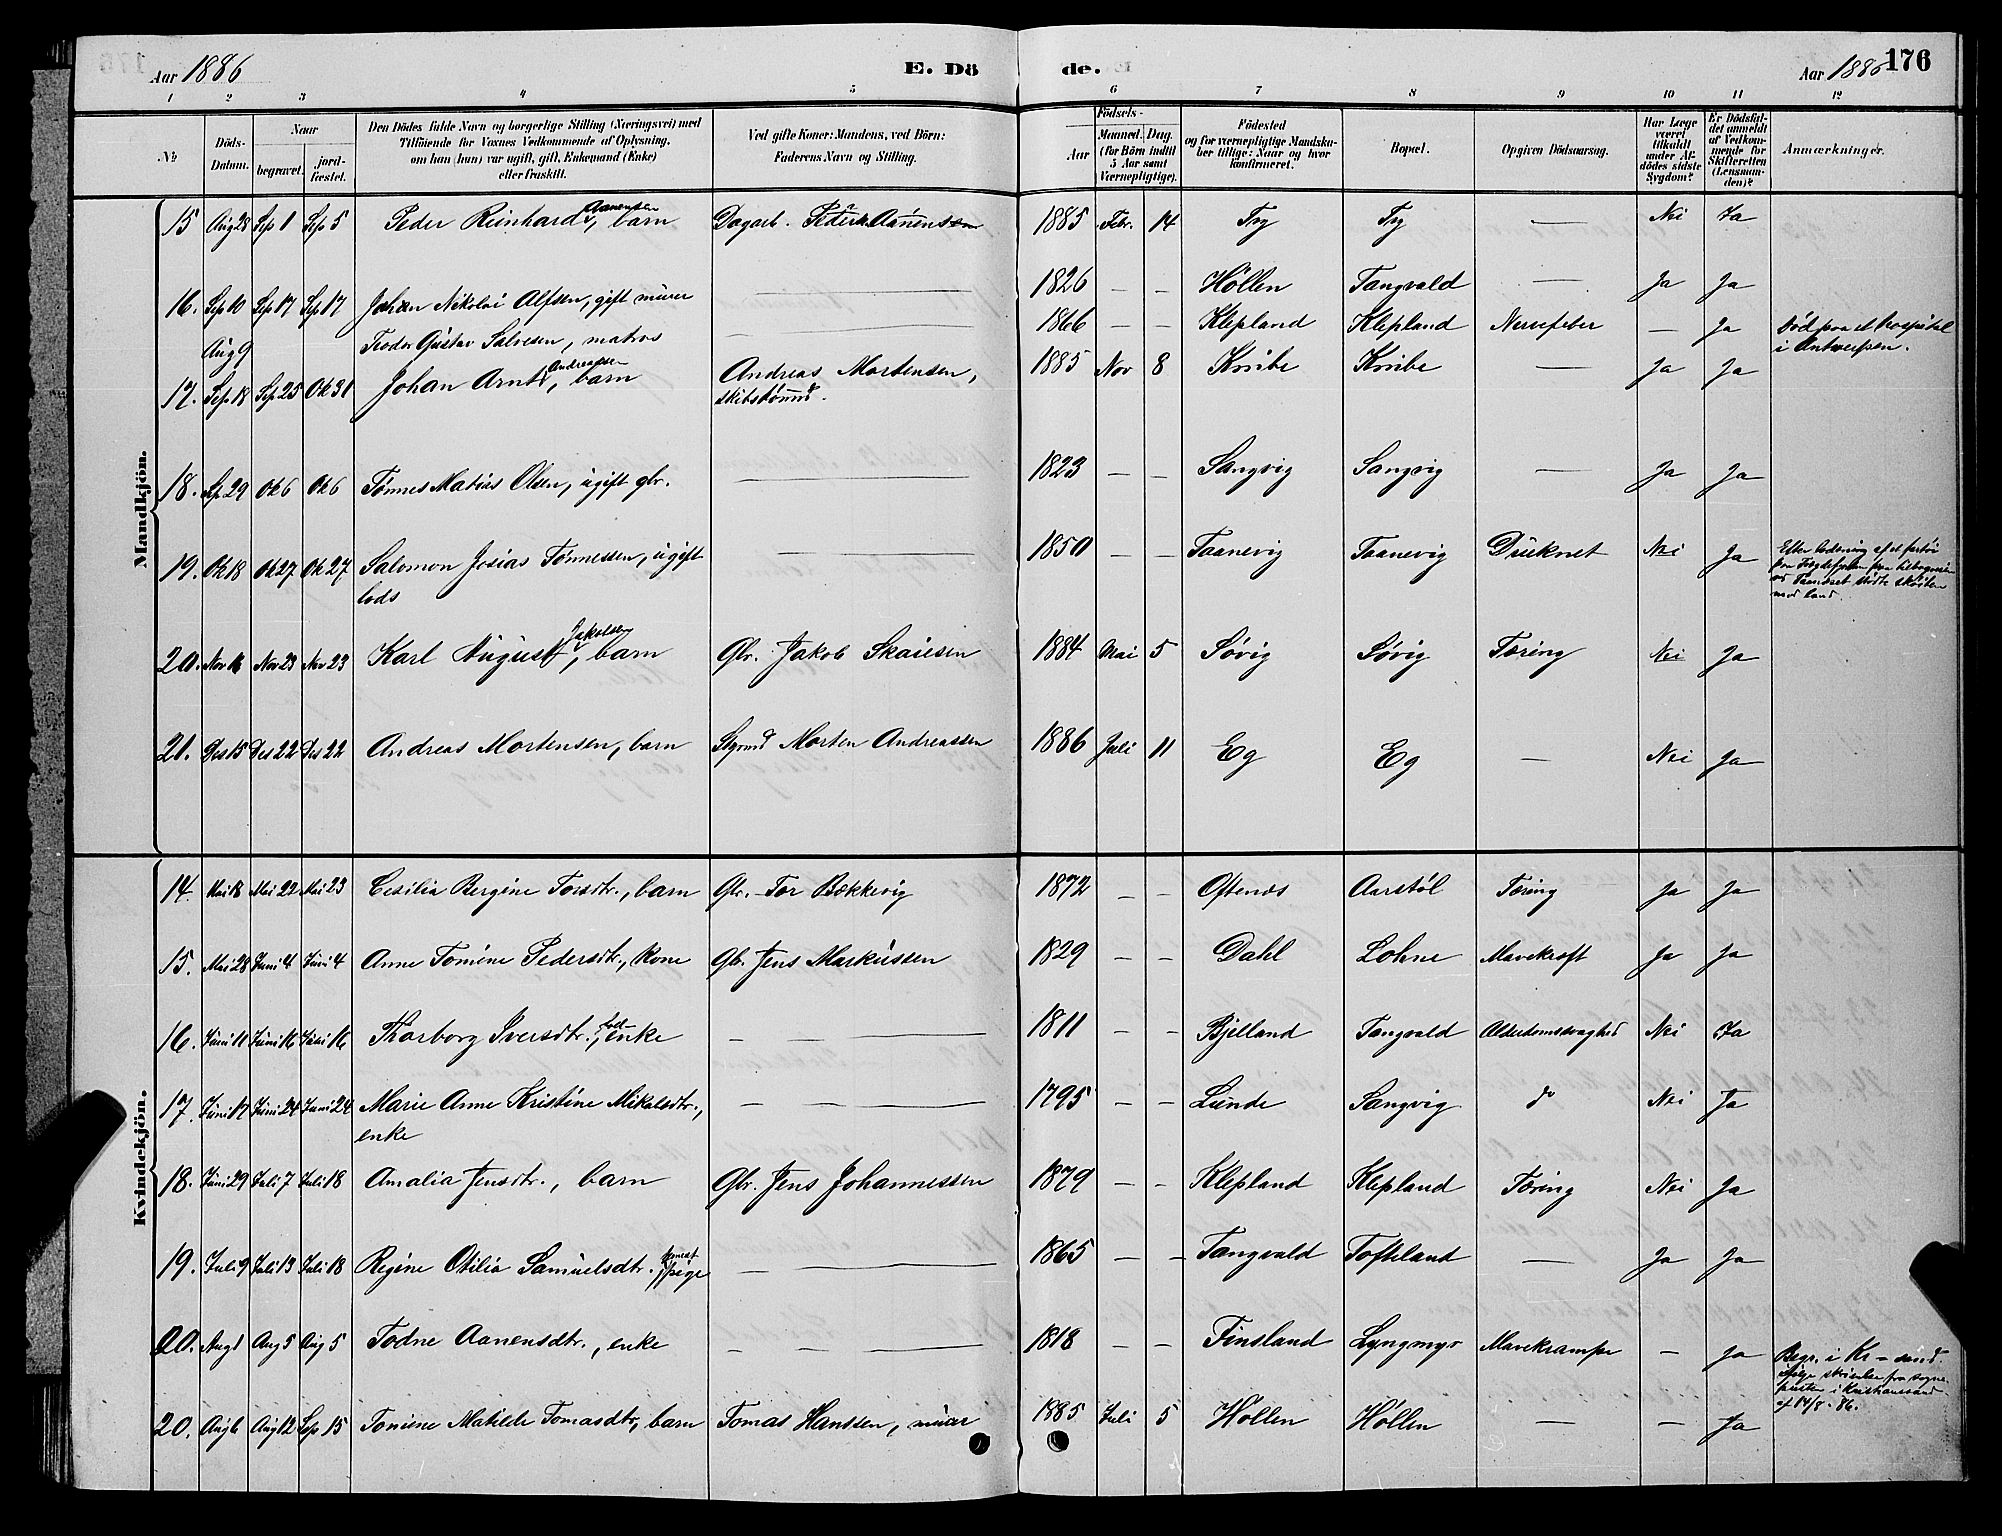 Aar 1886 E. Dö de. Aar 1886 176
1 2 3 4 5 6 7 8 9 10 11 12
№ Döds-Datum. Naar begravet. jordfæstet. Den Dödes fulde Navn og borgerlige Stilling (Næringsvei) med Tilföiende for Voxnes Vedkommende af Oplysning, om han (hun) var ugift, gift, Enkemand (Enke) eller fraskilt. Ved gifte Koner: Mandens, ved Börn: Faderens Navn og Stilling. Födsels- Aar Maaned. Dag. (for Börn indtil 5 Aar samt Værnepligtige). Födested og for værnepligtige Mandskaber tillige: Naar og hvor konfirmeret. Bopæl. Opgiven Dödsaarsag. Har Læge været tilkaldt under Afdödes sidste Sygdom? Er Dödsfaldet anmeldt af Vedkommende for Skifteretten (Lensmanden)? Anmærkninger.
Mandkjön.
15 Aug 28 Sep 1 Sep 5 Peder Reinhard Aanensen, barn Dagarb. Peder Aanensen 1885 Febr. 14 Try Try — Nei Ja
16. Sep 10 Sep 17 Sep 17 Johan Nikolai Alfsen, gift murer — 1826 — — Höllen Tangvald — Ja Ja
Aug 9 Teodor Gustav Salvesen, matros — 1866 — — Klepland Klepland Nervefeber — Ja Död paa et hospital
i Antwerpen.
17. Sep 18 Sep 25 Ok 31 Johan Arnt Andreassen, barn Andreas Mortensen, 1885 Nov 8 Knibe Knibe — Ja Ja
skibstömmd.
18. Sep 29 Ok 6 Ok 6 Tönnes Matias Olsen, ugift gbr. — 1823 — — Langvig Langvig — Ja Ja
19. Ok 18 Ok 27 Ok 27 Salomon Josias Tönnessen, ugift — 1850 — — Taanevig Taanevig Druknet Nei Ja Efter lodsning af et fartöi
lods
med land.
20. Nov 16 Nov 23 Nov 23 Karl August Jakobsen, barn Gbr. Jakob Skaiesen 1884 Mai 5 Søvig Søvig Tæring Nei Ja
21. Des 15 Des 22 Des 22 Andreas Mortensen, barn Styrmd Morten Andreassen 1886 Juli 11 Eg Eg — Nei Ja
Kvindekjön.
14. Mai 18 Mai 22 Mai 23 Cesilia Bergine Torsdtr., barn Gbr. Tor Bækkevig 1872 — — Oftenæs Aarstöl Tæring Ja Ja
15. Mai 28 Juni 4 Juni 4 Anne Tomine Pedersdtr., kone Gbr. Jens Markussen 1829 — — Dahl Lohne Mavekræft Ja Ja
16. Juni 11 Juni 16 Juni 16 Thorborg Iversdtr., lod-enke — 1811 — — Bjelland Tangvald Alderdomssvaghed Nei Ja
17. Juni 17 Juni 24 Juni 24 Marie Anne Kristine Mikalsdtr., — 1795 — — Lunde Langvig do Nei Ja
enke
18. Juni 29 Juli 7 Juli 18 Amalia Jensdtr., barn Gbr. Jens Johannessen 1879 — — Klepland Klepland Tæring Nei Ja
19. Juli 9 Juli 13 Juli 18 Regine Otilia Samuelsdtr., pige — 1865 — — Tangvald Tofteland — Ja Ja
20. Aug 1 Aug 5 Aug 5 Todne Aanensdtr., enke — 1818 — — Finsland Lyngmyr Mavekrampe — Ja Begr. i Kr-sand.
ifølge skrivelse fra sogne
presten i Kristianssand
af 10/8-86.
20. Aug 6 Aug 12 Sep 15 Tomine Matilde Tomasdtr, barn Tomas Hanssen, murer 1885 Juli 5 Höllen Höllen — — Ja